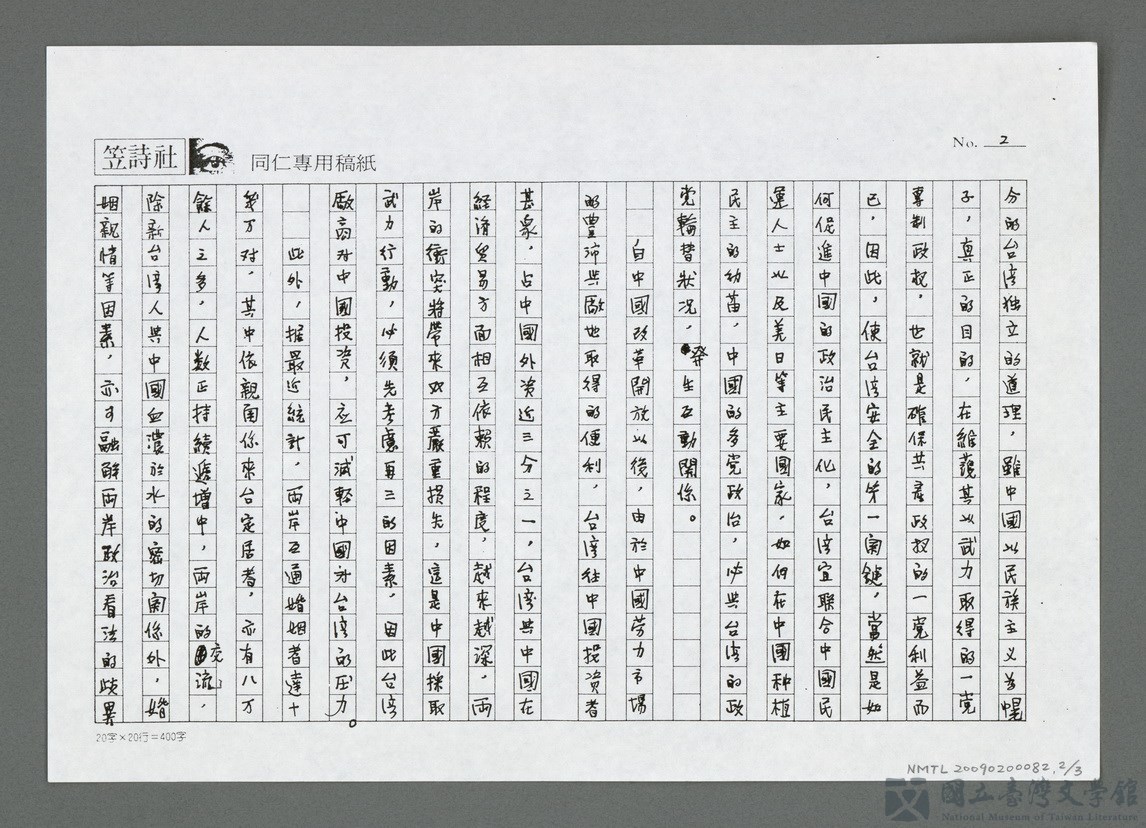 笠詩社
同仁專用稿紙
No. 2
分的台湾独立的道理，雖中國以民族主义為幌
子，真正的目的，在維護其以武力取得的一党
專制政权，也就是確保共產政权的一党利益而
已，因此，使台湾安全的第一関鍵，當然是如
何促進中國的政治民主化，台湾宜联合中國民
運人士以及美日等主要國家，如何在中國种植
民主的幼苗，中國的多党政治，必與台湾的政
党輪替狀況，發生互動關係。
自中國改革開放以後，由於中國劳力市場
的豊沛與廠地取得的便利，台湾往中國投資者
甚衆，占中國外资近三分之一，台湾與中國在
経済貿易方面相互依賴的程度，越來越深，両
岸的衝突將帶來双方嚴重損失，這是中國採取
武力行動，必須先考慮再三的因素，因此台湾
廠商对中國投資，应可減輕中國对台湾的压力。
此外，据最近統計，両岸互通婚姻者達十
幾万对，其中依親関係來台定居者，亦有八万
餘人之多，人数正持續遞增中，両岸的交流，
除新台湾人與中國血濃於水的密切関係外，婚
姻親情等因素，亦可融解両岸政治看法的歧異
20字×20行=400字
NMTL 20090200082, 2/3
國立臺灣文學館
National Museum of Taiwan Literature